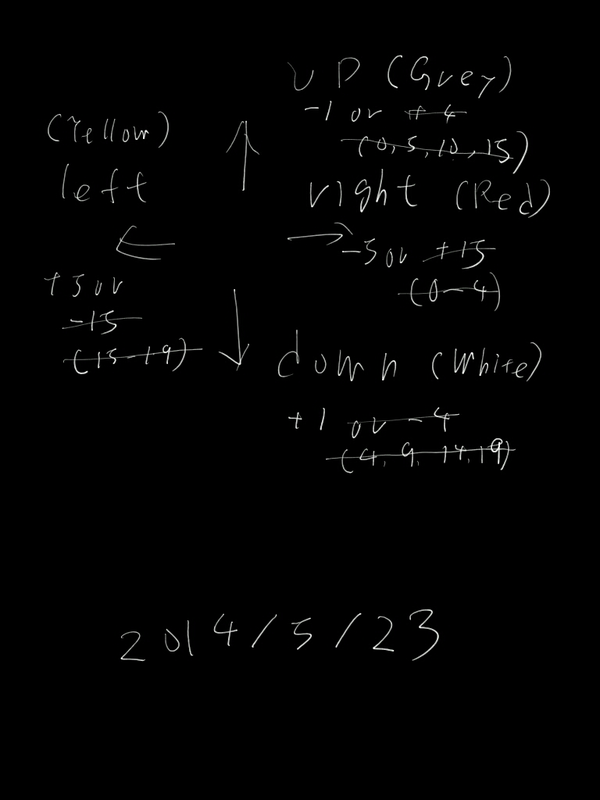 UP (Grey)
-1 or +4
(0,5,10,15)
(Yellow)
left
right (Red)
-5 or +15
(0-4)
+5 or
-15
(15-19)
down (White)
+1 or -4
(4,9,14,19)
2014/5/23